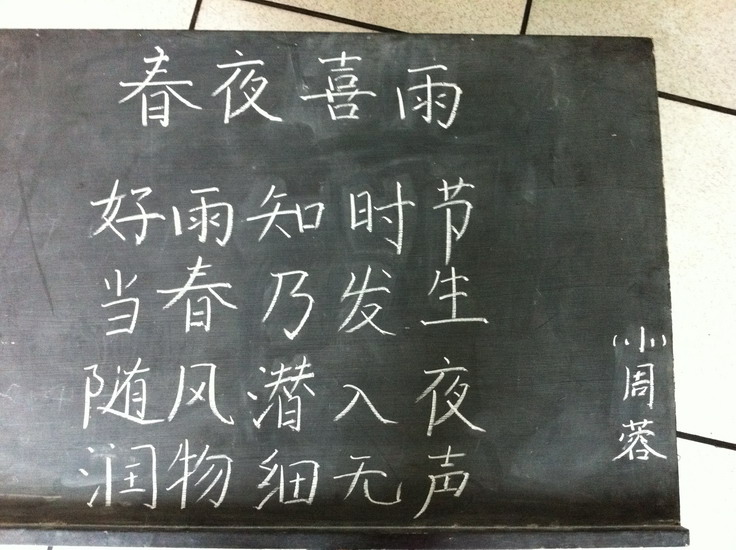 春夜喜雨
好雨知时节
当春乃发生
随风潜入夜
润物细无声
（小）周蓉